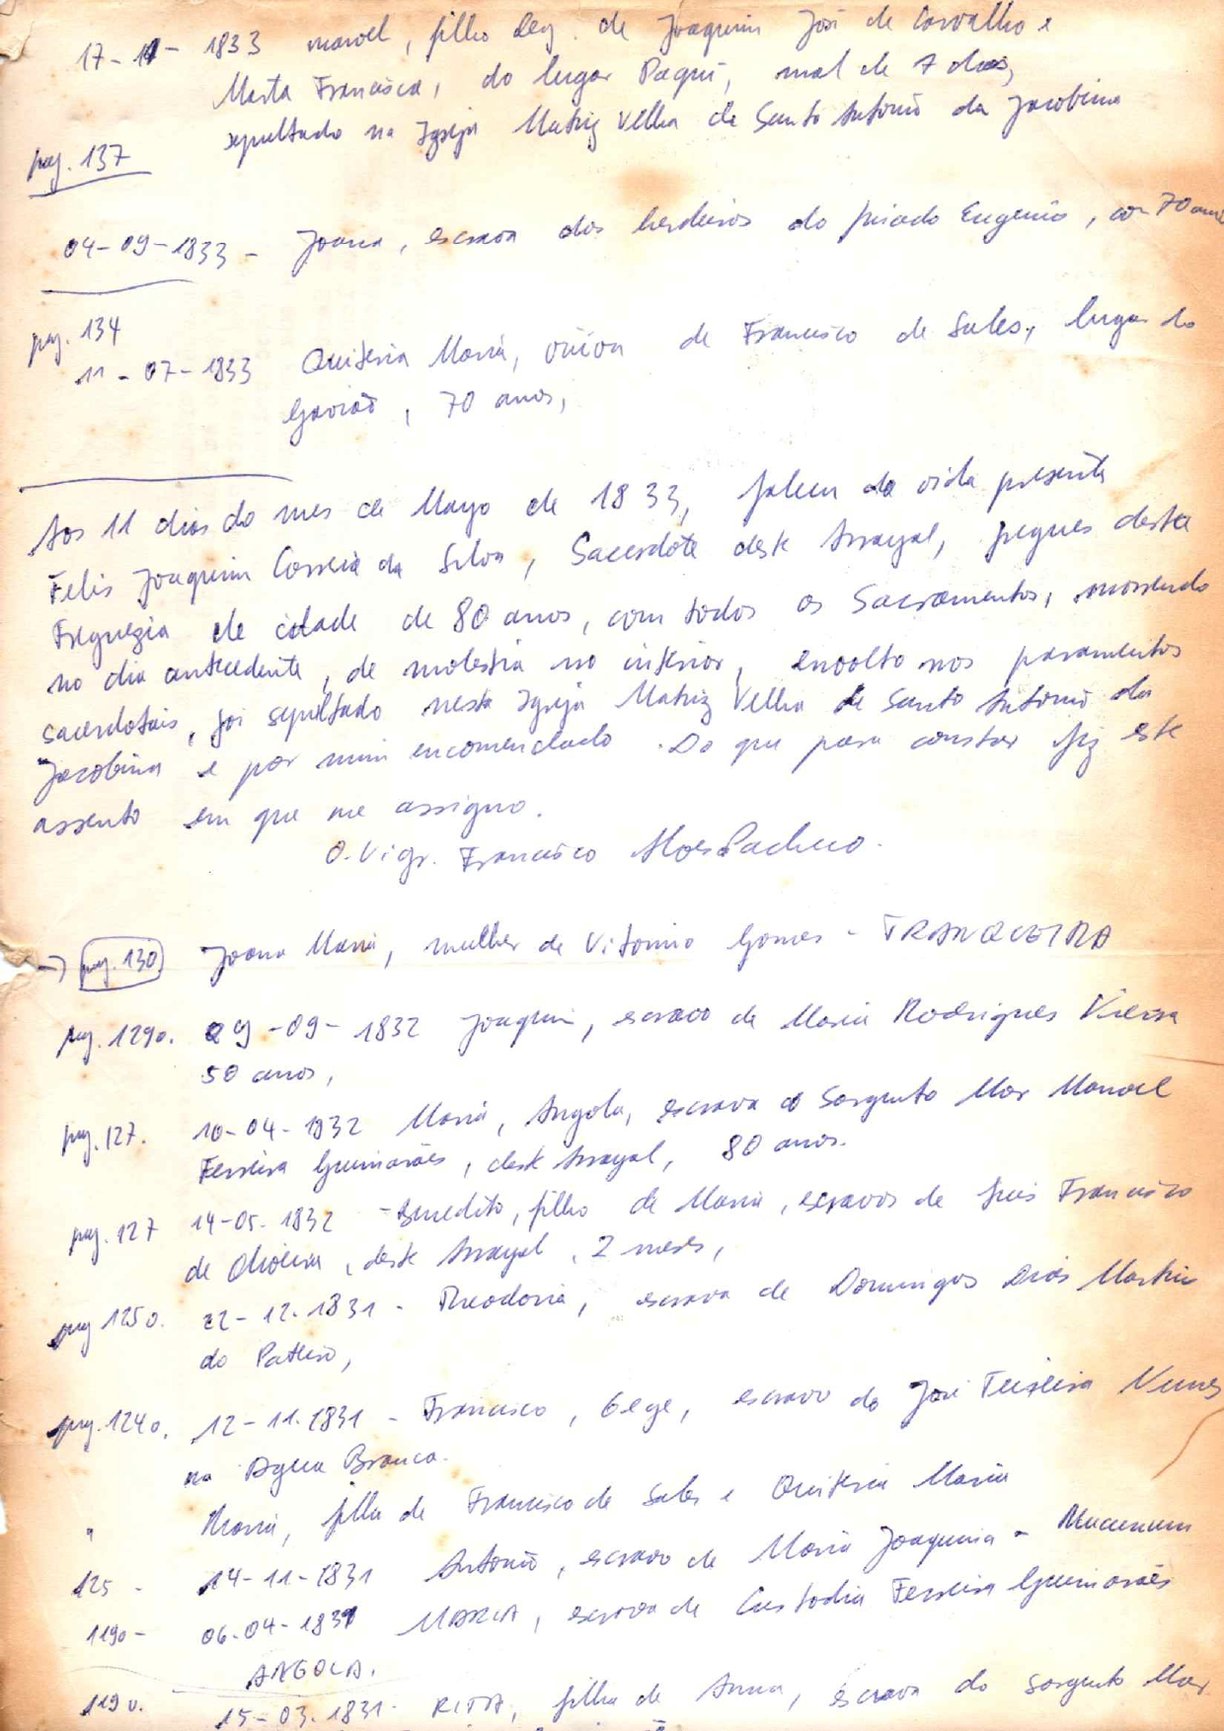 17-11-1833 manoel, filho leg. de Joaquim José de Carvalho e
Marta Francisca, do lugar Paqui, mal de 7 dias,
sepultado na Igreja Matriz Velha de Santo Antonio da Jacobina
pag. 137
04-09-1833 - Joana, escrava dos herdeiros do finado Eugenio, com 70 anos
pag. 134
11-07-1833 Quiteria Maria, viúva de Francisco de Sales, lugar do
Gavião, 70 anos,
Aos 11 dias do mes de Mayo de 1833, faleceu da vida presente
Felis Joaquim Correia da Silva, Sacerdote deste Arrayal, fregues desta
Freguezia de idade de 80 anos, com todos os Sacramentos, morrendo
no dia antecedente, de molestia no interior, envolto nos paramentos
sacerdotais, foi sepultado nesta Igreja Matriz Velha de Santo Antonio da
Jacobina e por mim encomendado. Do que para constar fiz este
assento em que me assigno.
O. Vigr. Francisco Alves Pacheco.
→ pag. 130 Joana Maria, mulher de Vitorino Gomes - TRANQUEIRA
pag. 129v. 29-09-1832 Joaquim, escravo de Maria Rodrigues Vieira
50 anos,
pag. 127. 10-04-1832 Maria, Angola, escrava do Sargento Mor Manoel
Ferreira Guimarães, deste Arrayal, 80 anos.
pag. 127 14-05-1832 - Benedito, filho de Maria, escravos de Luis Francisco
de Oliveira, deste Arrayal, 2 meses,
pag 125v. 22-12-1831 - Theodoria, escrava de Domingos Dias Martins
do
pag. 124v. 12-11-1831 - Francisco, Gege, escravo do José Teixeira Nunes
na Agua Branca.
" Maria, filha de Francisco de Sales e Quiteria Maria
125 - 14-11-1831 Antonio, escravo de Maria Joaquina -
119v - 06-04-1831 MARIA, escrava de Custodia Ferreira Guimarães
ANGOLA.
119v. 15-03-1831 - RITTA, filha de Anna, escrava do Sargento Mor